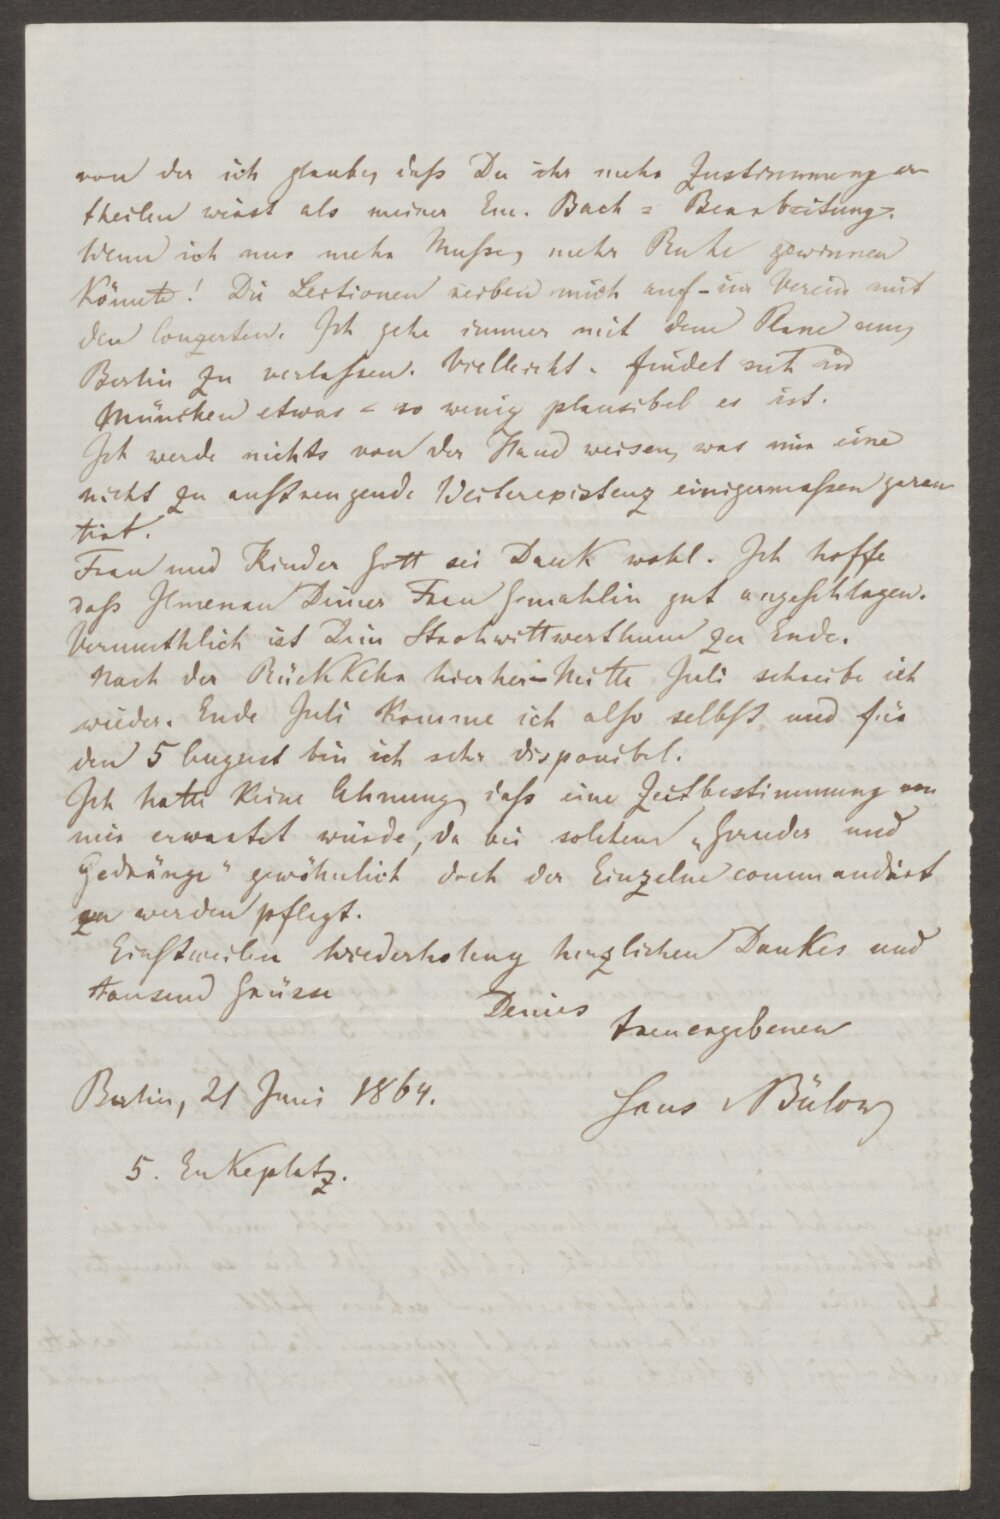 von der ich glaube, daß Du ihr mehr Zustimmung er-
theilen wirst als meiner Em. Bach = Bearbeitung.
Wenn ich nur mehr Muße, mehr Ruhe gewinnen
könnte! Die Lectionen reiben mich auf – im Verein mit
den Conzerten. Ich gehe immer mit dem Plane um,
Berlin zu verlassen. Vielleicht findet sich in
München etwas – so wenig plausibel es ist.
Ich werde nichts von der Hand weisen, was mir eine
nicht zu anstrengende Weiterexistenz einigermaßen garan-
tirt.
Frau und Kinder Gott sei Dank wohl. Ich hoffe
daß Ilmenau Deiner Frau Gemahlin gut angeschlagen.
Vermuthlich ist Dein Strohwittwerthum zu Ende.
Nach der Rückkehr hierher – Mitte Juli schreibe ich
wieder. Ende Juli komme ich also selbst und für
den 5 August bin ich sehr disponibel.
Ich hatte keine Ahnung, daß eine Zeitbestimmung von
mir erwartet würde, da bei solchem „Gerudes und
Gedränge" gewöhnlich doch der Einzelne commandirt
zu werden pflegt.
Einstweilen Wiederholung herzlichen Dankes und
tausend Grüsse
Deines
treuergebenen
Berlin, 21 Juni 1864.
Hans vBülow
5. Enkeplatz.